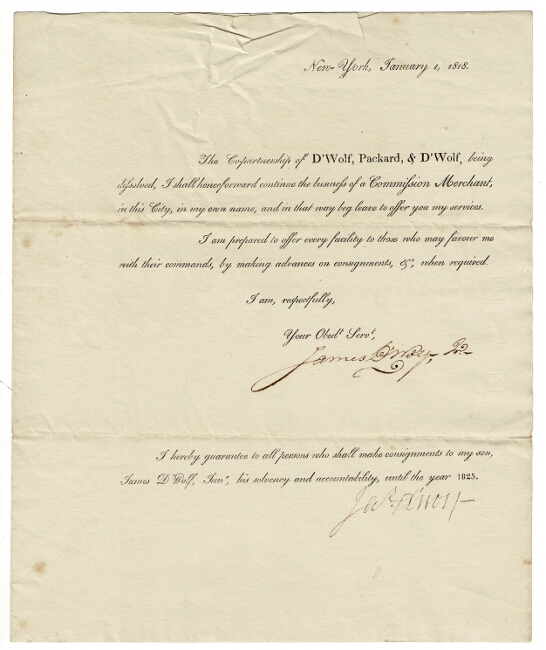 New-York, January 1, 1818.
The Copartnership of D'Wolf, Packard, & D'Wolf, being
dissolved, I shall henceforward continue the business of a Commission Merchant,
in this City, in my own name, and in that way beg leave to offer you my services.
I am prepared to offer every facility to those who may favour me
with their commands, by making advances on consignments, &c, when required.
I am, respectfully,
Your Obedt Servt,
James D'Wolf, Jr.
I hereby guarantee to all persons who shall make consignments to my son,
James D'Wolf, Junr, his solvency and accountability, until the year 1825.
Jas. D'Wolf